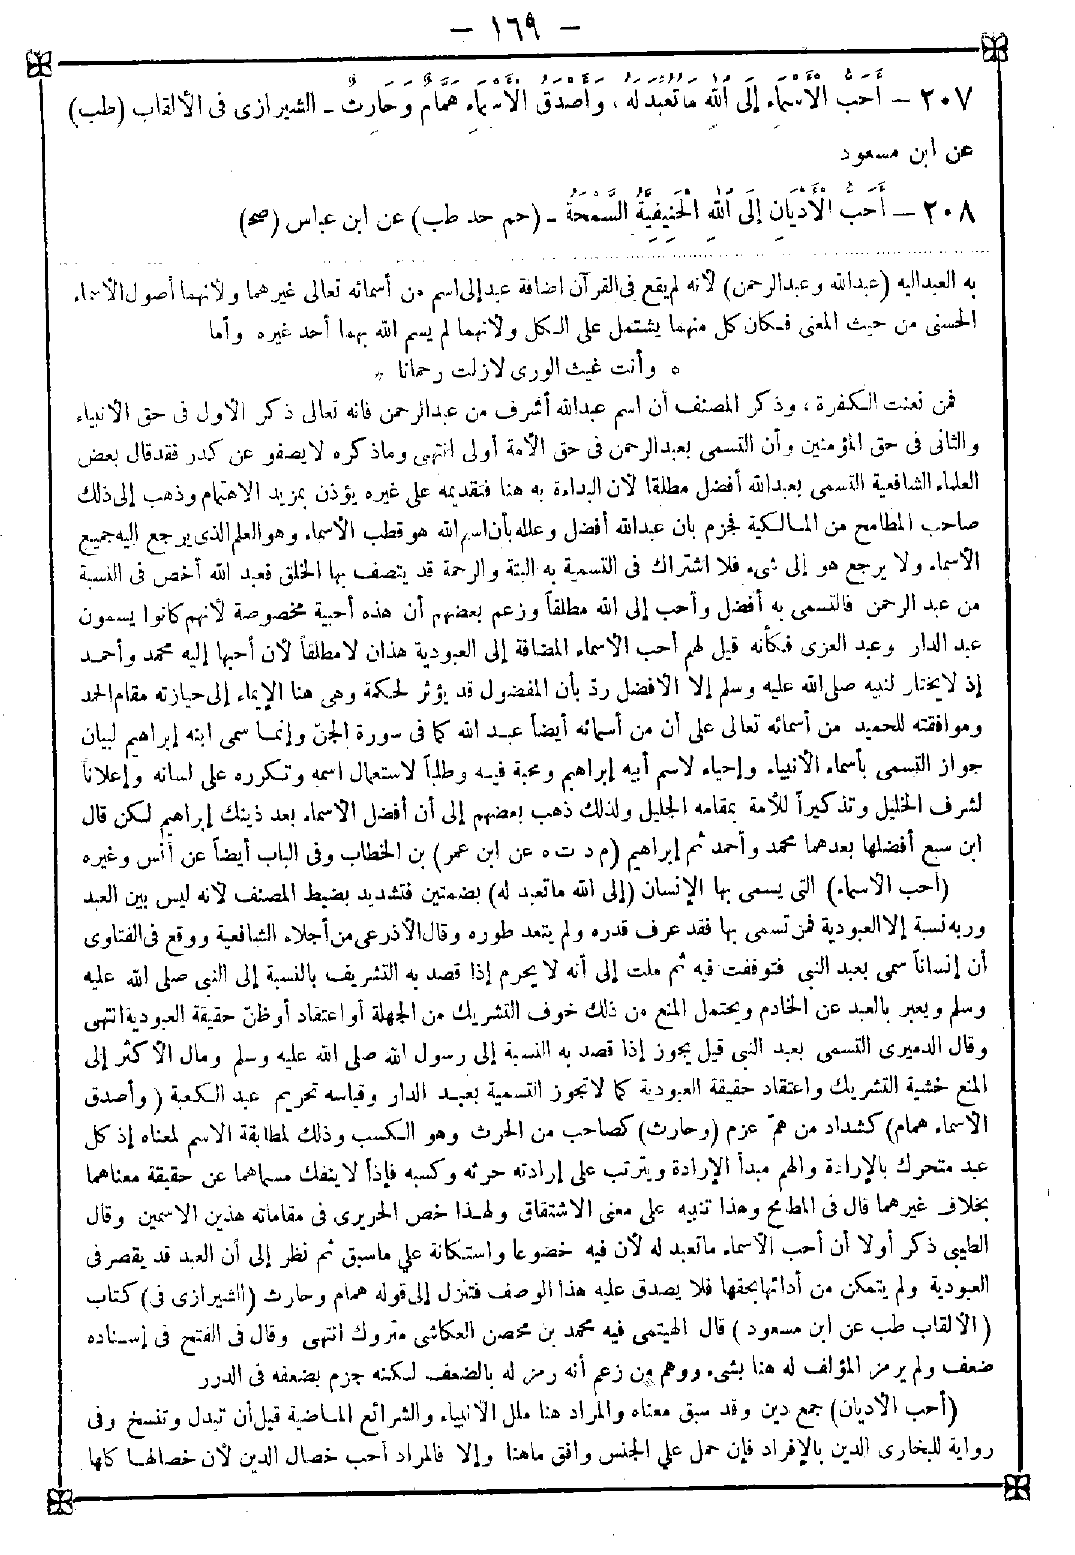 - ١٦٩ -
٢٠٧ - أَحَبُّ الْأَسْمَاءِ إِلَى اللهِ مَا تُعُبِّدَ لَهُ ، وَأَصْدَقُ الْأَسْمَاءِ هَمَّامٌ وَحَارِثٌ - الشيرازى فى الألقاب (طب)
عن ابن مسعود
٢٠٨ - أَحَبُّ الْأَدْيَانِ إِلَى اللهِ الْحَنِيفِيَّةُ السَّمْحَةُ - (حم خد طب) عن ابن عباس (صح)
به العبد اليه (عبد الله وعبد الرحمن) لأنه لم يقع فى القرآن اضافة عبد إلى اسم من أسمائه تعالى غيرهما ولأنهما أصول الأسماء
الحسنى من حيث المعنى فكان كل منهما يشتمل على الكل ولأنهما لم يسم الله بهما أحد غيره وأما
* وأنت غيث الورى لازلت رحمانا *
فمن تعنت الكفرة ، وذكر المصنف أن اسم عبد الله أشرف من عبد الرحمن فانه تعالى ذكر الاول فى حق الانبياء
والثانى فى حق المؤمنين وأن التسمى بعبد الرحمن فى حق الأمة أولى انتهى وماذكره لا يصفو عن كدر فقد قال بعض
العلماء الشافعية التسمى بعبد الله أفضل مطلقا لأن البداءة به هنا فتقديمه على غيره يؤذن بمزيد الاهتمام وذهب إلى ذلك
صاحب المطامح من المالكية فجزم بان عبد الله أفضل وعلله بأن اسم الله هو قطب الأسماء وهو العلم الذى يرجع إليه جميع
الأسماء ولا يرجع هو إلى شىء فلا اشتراك فى التسمية به البتة والرحمة قد يتصف بها الخلق فعبد الله أخص فى النسبة
من عبد الرحمن فالتسمى به أفضل وأحب إلى الله مطلقاً وزعم بعضهم أن هذه أحبية مخصوصة لأنهم كانوا يسمون
عبد الدار وعبد العزى فكأنه قيل لهم أحب الاسماء المضافة إلى العبودية هذان لامطلقاً لأن أحبها إليه محمد وأحمد
إذ لا يختار لنبيه صلى الله عليه وسلم إلا الأفضل ردّ بأن المفضول قد يؤثر لحكمة وهى هنا الإيماء إلى حيازته مقام الحمد
وموافقته للحميد من أسمائه تعالى على أن من أسمائه أيضاً عبد الله كما فى سورة الجنّ وإنما سمى ابنه إبراهيم لبيان
جواز التسمى بأسماء الأنبياء وإحياء لاسم أبيه إبراهيم ومحبة فيه وطلباً لاستعمال اسمه وتكرره على لسانه وإعلاناً
لشرف الخليل وتذكيراً للأمة بمقامه الجليل ولذلك ذهب بعضهم إلى أن أفضل الاسماء بعد ذينك إبراهيم لكن قال
ابن سبع أفضلها بعدهما محمد وأحمد ثم إبراهيم (م د ت ه عن ابن عمر) بن الخطاب وفى الباب أيضاً عن أنس وغيره
(أحب الاسماء) التى يسمى بها الإنسان (إلى الله ما تعبد له) بضمتين فتشديد بضبط المصنف لأنه ليس بين العبد
وربه نسبة إلا العبودية فمن تسمى بها فقد عرف قدره ولم يتعد طوره وقال الأذرعى من أجلاء الشافعية ووقع فى الفتاوى
أن إنساناً سمى بعبد النبى فتوقفت فيه ثم ملت إلى أنه لا يحرم إذا قصد به التشريف بالنسبة إلى النبى صلى الله عليه
وسلم ويعبر بالعبد عن الخادم ويحتمل المنع من ذلك خوف التشريك من الجهلة أو اعتقاد أو ظنّ حقيقة العبودية انتهى
وقال الدميرى التسمى بعبد النبى قيل يجوز إذا قصد به النسبة إلى رسول الله صلى الله عليه وسلم ومال الأكثر إلى
المنع خشية التشريك واعتقاد حقيقة العبودية كما لا تجوز التسمية بعبد الدار وقياسه تحريم عبد الكعبة (وأصدق
الاسماء همام) كشداد من همّ عزم (وحارث) كصاحب من الحرث وهو الكسب وذلك لمطابقة الاسم لمعناه إذ كل
عبد متحرك بالإرادة والهم مبدأ الإرادة ويترتب على إرادته حرثه وكسبه فإذاً لا ينفك مسماهما عن حقيقة معناهما
بخلاف غيرهما قال فى المطامح وهذا تنبيه على معنى الاشتقاق ولهذا خص الحريرى فى مقاماته هذين الاسمين وقال
الطيبى ذكر أولا أن أحب الأسماء ما تعبد له لأن فيه خضوعا واستكانة على ماسبق ثم نظر إلى أن العبد قد يقصر فى
العبودية ولم يتمكن من أدائها بحقها فلا يصدق عليه هذا الوصف فتنزل إلى قوله همام وحارث (الشيرازى فى) كتاب
(الألقاب طب عن ابن مسعود) قال الهيتمى فيه محمد بن محصن العكاشى متروك انتهى وقال فى الفتح فى إسناده
ضعف ولم يرمز المؤلف له هنا بشىء ووهم من زعم أنه رمز له بالضعف لكنه جزم بضعفه فى الدرر
(أحب الأديان) جمع دين وقد سبق معناه والمراد هنا ملل الانبياء والشرائع الماضية قبل أن تبدل وتنسخ وفى
رواية للبخارى الدين بالإفراد فإن حمل على الجنس وافق ماهنا وإلا فالمراد أحب خصال الدين لأن خصالها كلها